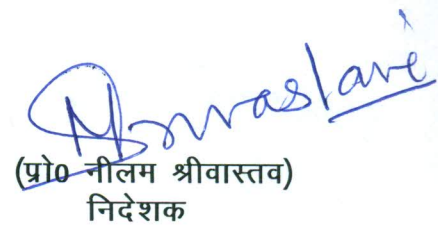 NSrivastave
(प्रो० नीलम श्रीवास्तव)
निदेशक